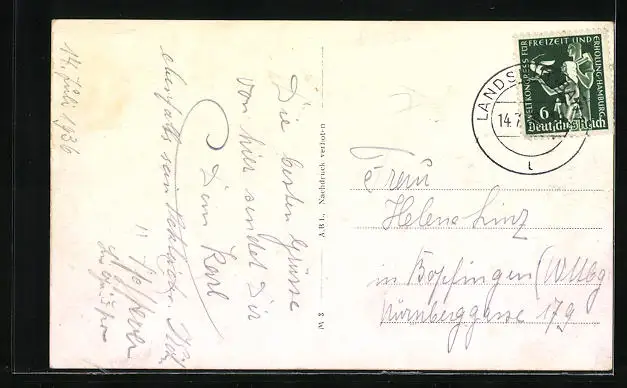 14. Juli 1936
Die besten Grüsse
von hier sendet Dir
Dein Karl
ebenfalls sein
A.B.L. Nachdruck verboten
M 8
WELTKONGRESS FÜR FREIZEIT UND ERHOLUNG HAMBURG
6
Deutsches Reich
LANDS
14.7.
L
Frau
Helene Linz
in Bopfingen (Wttbg
Nürnbergergasse 179